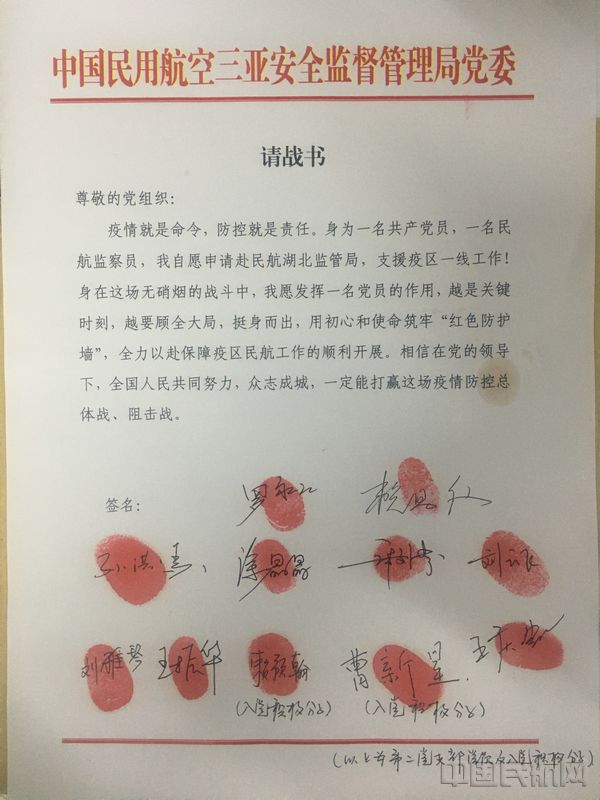 中国民用航空三亚安全监督管理局党委
请战书
尊敬的党组织：
疫情就是命令，防控就是责任。身为一名共产党员，一名民
航监察员，我自愿申请赴民航湖北监管局，支援疫区一线工作！
身在这场无硝烟的战斗中，我愿发挥一名党员的作用，越是关键
时刻，越要顾全大局，挺身而出，用初心和使命筑牢“红色防护
墙”，全力以赴保障疫区民航工作的顺利开展。相信在党的领导
下，全国人民共同努力，众志成城，一定能打赢这场疫情防控总
体战、阻击战。
签名：
孙洪 涂晶晶
刘雅琴 王振华 赖颜翰 曹新星
（入党积极分子） （入党积极分子）
（以上为第二党支部党员及入党积极分子）
中国民航网